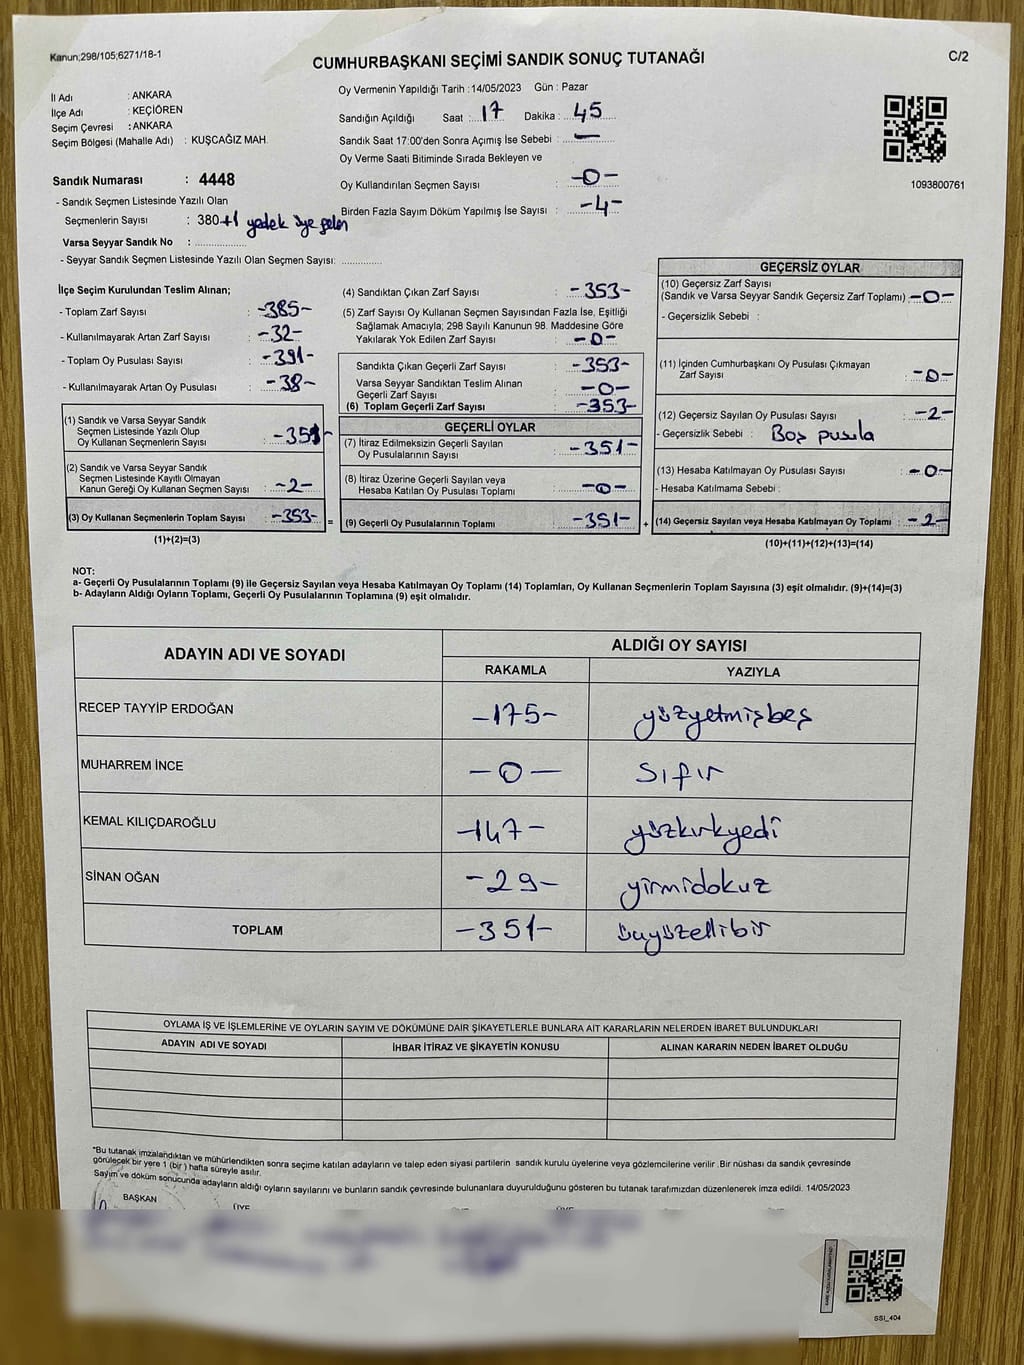 Kanun;298/105;6271/18-1
CUMHURBAŞKANI SEÇİMİ SANDIK SONUÇ TUTANAĞI
C/2
İl Adı : ANKARA
İlçe Adı : KEÇİÖREN
Seçim Çevresi : ANKARA
Seçim Bölgesi (Mahalle Adı) : KUŞCAĞIZ MAH.
Sandık Numarası : 4448
- Sandık Seçmen Listesinde Yazılı Olan
Seçmenlerin Sayısı : 380+1 yedek üye gelen
Varsa Seyyar Sandık No : ................
- Seyyar Sandık Seçmen Listesinde Yazılı Olan Seçmen Sayısı: .............
Oy Vermenin Yapıldığı Tarih : 14/05/2023 Gün : Pazar
Sandığın Açıldığı Saat : 17 Dakika : 45
Sandık Saat 17:00'den Sonra Açımış İse Sebebi : —
Oy Verme Saati Bitiminde Sırada Bekleyen ve
Oy Kullandırılan Seçmen Sayısı : -0-
Birden Fazla Sayım Döküm Yapılmış İse Sayısı : -4-
1093800761
İlçe Seçim Kurulundan Teslim Alınan;
- Toplam Zarf Sayısı : -385-
- Kullanılmayarak Artan Zarf Sayısı : -32-
- Toplam Oy Pusulası Sayısı : -391-
- Kullanılmayarak Artan Oy Pusulası : -38-
(1) Sandık ve Varsa Seyyar Sandık
Seçmen Listesinde Yazılı Olup
Oy Kullanan Seçmenlerin Sayısı : -351-
(2) Sandık ve Varsa Seyyar Sandık
Seçmen Listesinde Kayıtlı Olmayan
Kanun Gereği Oy Kullanan Seçmen Sayısı : -2-
(3) Oy Kullanan Seçmenlerin Toplam Sayısı : -353-
(1)+(2)=(3)
=
(4) Sandıktan Çıkan Zarf Sayısı : -353-
(5) Zarf Sayısı Oy Kullanan Seçmen Sayısından Fazla İse, Eşitliği
Sağlamak Amacıyla; 298 Sayılı Kanunun 98. Maddesine Göre
Yakılarak Yok Edilen Zarf Sayısı : -0-
Sandıkta Çıkan Geçerli Zarf Sayısı : -353-
Varsa Seyyar Sandıktan Teslim Alınan
Geçerli Zarf Sayısı : -0-
(6) Toplam Geçerli Zarf Sayısı : -353-
GEÇERLİ OYLAR
(7) İtiraz Edilmeksizin Geçerli Sayılan
Oy Pusulalarının Sayısı : -351-
(8) İtiraz Üzerine Geçerli Sayılan veya
Hesaba Katılan Oy Pusulası Toplamı : -0-
(9) Geçerli Oy Pusulalarının Toplamı : -351-
+
GEÇERSİZ OYLAR
(10) Geçersiz Zarf Sayısı
(Sandık ve Varsa Seyyar Sandık Geçersiz Zarf Toplamı) : -0-
- Geçersizlik Sebebi :
(11) İçinden Cumhurbaşkanı Oy Pusulası Çıkmayan
Zarf Sayısı : -0-
(12) Geçersiz Sayılan Oy Pusulası Sayısı : -2-
- Geçersizlik Sebebi : Boş pusula
(13) Hesaba Katılmayan Oy Pusulası Sayısı : -0-
- Hesaba Katılmama Sebebi :
(14) Geçersiz Sayılan veya Hesaba Katılmayan Oy Toplamı : -2-
(10)+(11)+(12)+(13)=(14)
NOT:
a- Geçerli Oy Pusulalarının Toplamı (9) ile Geçersiz Sayılan veya Hesaba Katılmayan Oy Toplamı (14) Toplamları, Oy Kullanan Seçmenlerin Toplam Sayısına (3) eşit olmalıdır. (9)+(14)=(3)
b- Adayların Aldığı Oyların Toplamı, Geçerli Oy Pusulalarının Toplamına (9) eşit olmalıdır.
ADAYIN ADI VE SOYADI ALDIĞI OY SAYISI
RAKAMLA YAZIYLA
RECEP TAYYİP ERDOĞAN -175- yüzyetmişbeş
MUHARREM İNCE -0- sıfır
KEMAL KILIÇDAROĞLU -147- yüzkırkyedi
SİNAN OĞAN -29- yirmidokuz
TOPLAM -351- üçyüzellibir
OYLAMA İŞ VE İŞLEMLERİNE VE OYLARIN SAYIM VE DÖKÜMÜNE DAİR ŞİKAYETLERLE BUNLARA AİT KARARLARIN NELERDEN İBARET BULUNDUKLARI
ADAYIN ADI VE SOYADI İHBAR İTİRAZ VE ŞİKAYETİN KONUSU ALINAN KARARIN NEDEN İBARET OLDUĞU
"Bu tutanak imzalandıktan ve mühürlendikten sonra seçime katılan adayların ve talep eden siyasi partilerin sandık kurulu üyelerine veya gözlemcilerine verilir .Bir nüshası da sandık çevresinde
görülecek bir yere 1 (bir ) hafta süreyle asılır.
Sayım ve döküm sonucunda adayların aldığı oyların sayılarını ve bunların sandık çevresinde bulunanlara duyurulduğunu gösteren bu tutanak tarafımızdan düzenlenerek imza edildi. 14/05/2023
BAŞKAN
ÜYE
SSI_404